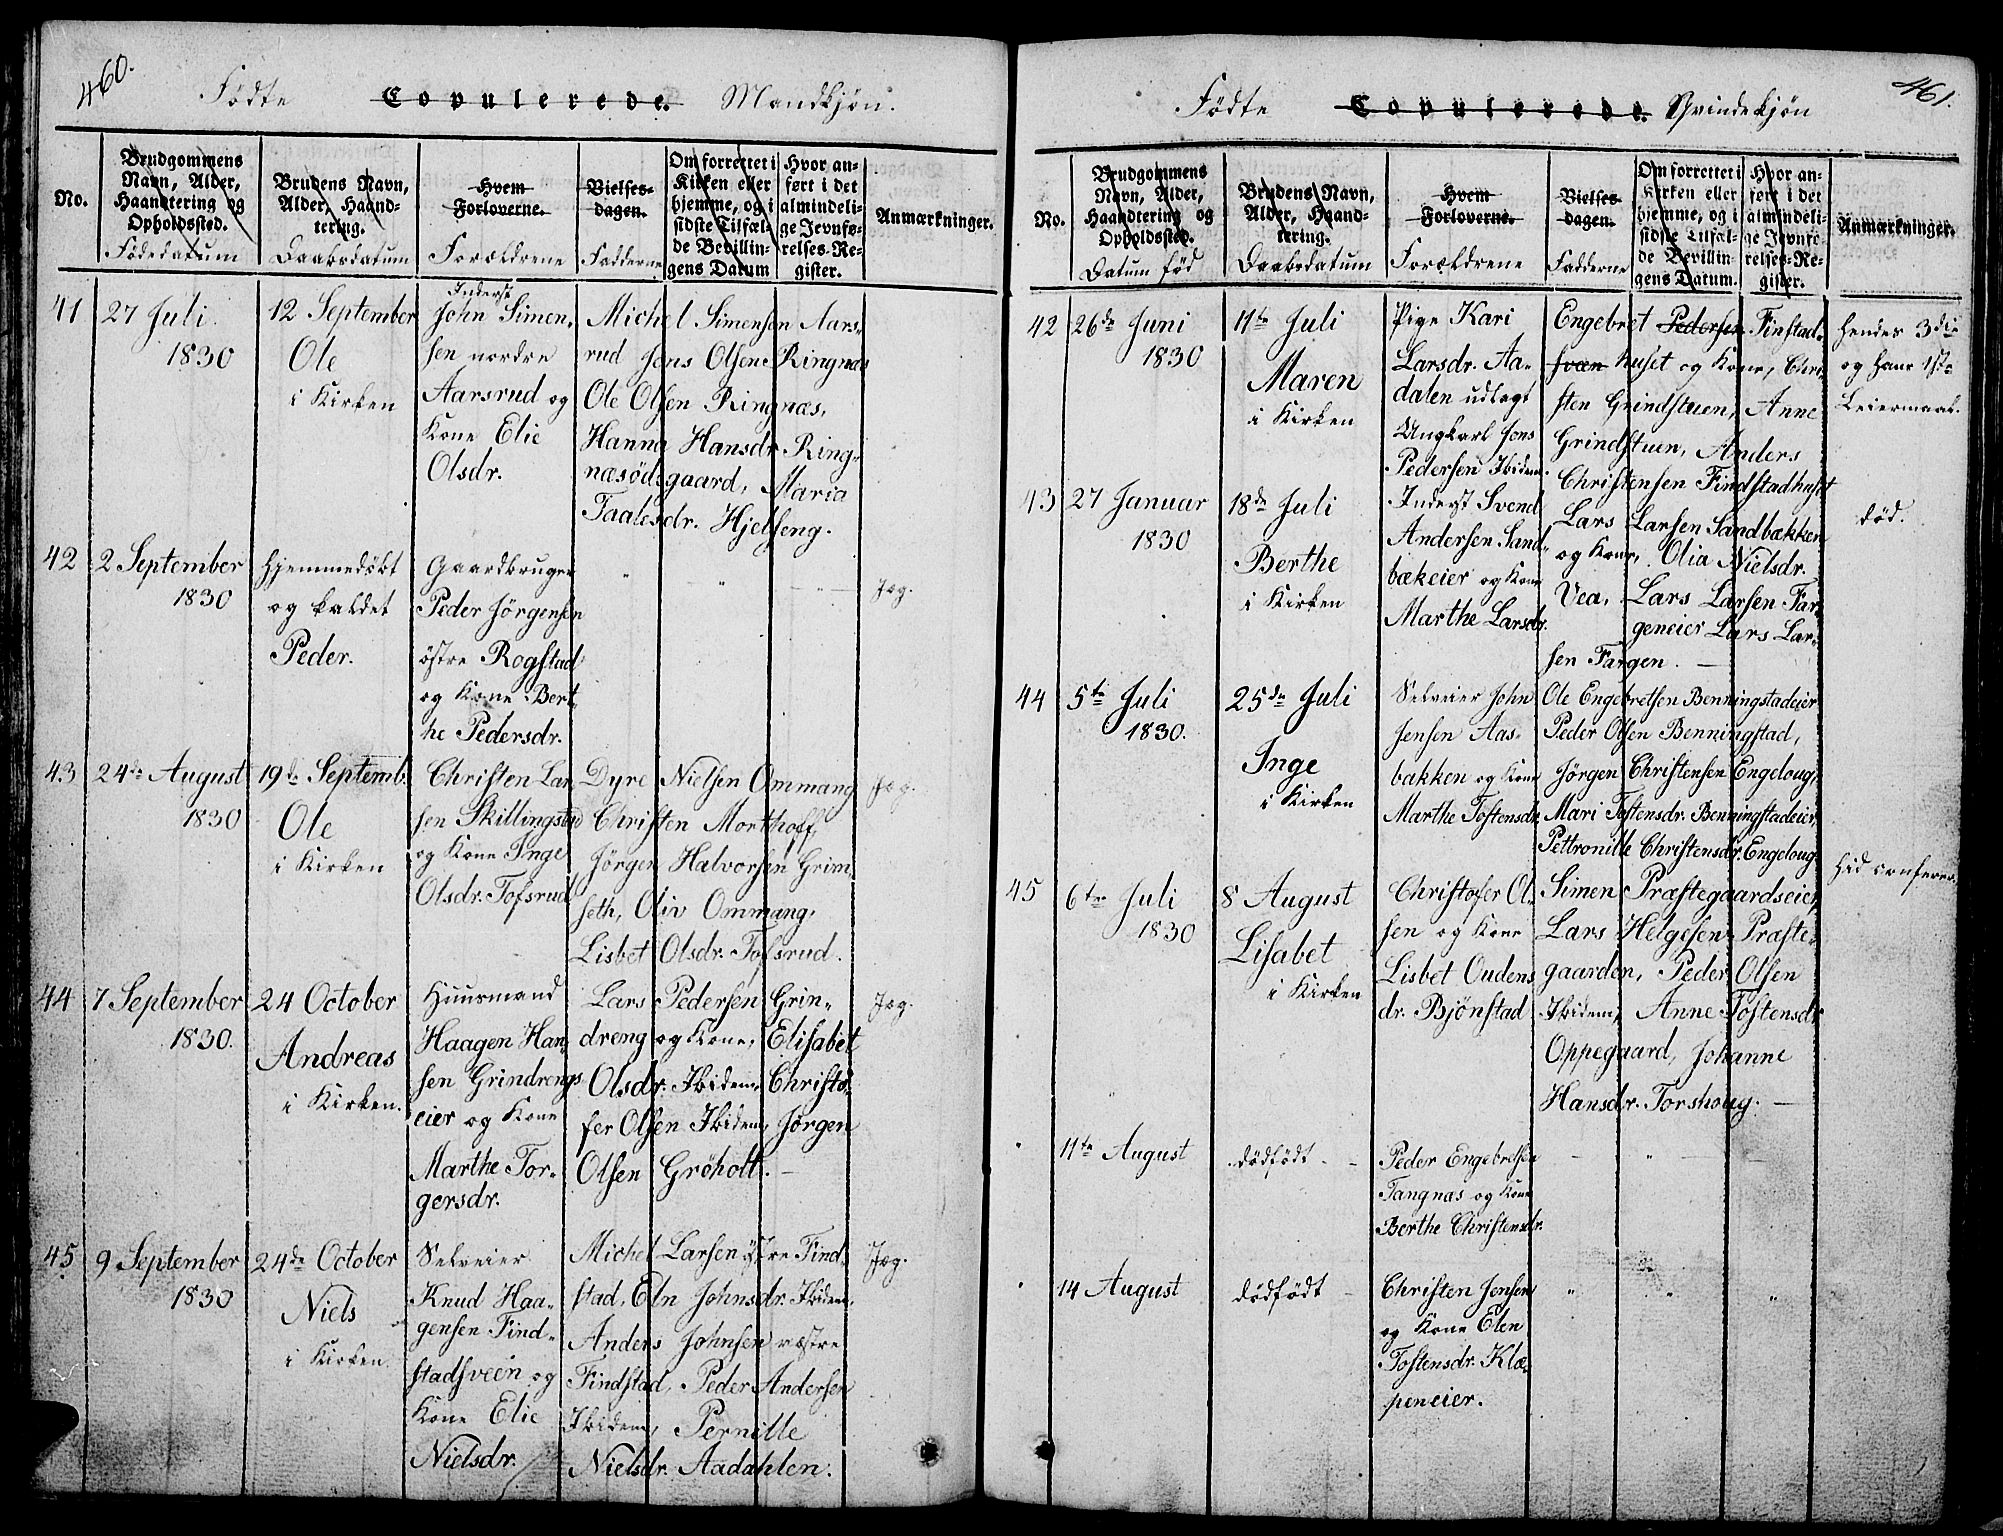 460.
Födte Copulerede. Mandkjön.
No.
Brudgommens
Navn, Alder,
Haandtering og
Opholdssted.
Födedatum
Brudens Navn,
Alder, Haand-
tering.
Daabsdatum
Hvem
Forloverne.
Forældrene
Vielses-
dagen.
Fadderne
Om forrettet i
Kirken eller
hjemme, og i
sidste Tilfæl-
de Bevillin-
gens Datum
Hvor an-
ført i det
almindeli-
ge Jevnfø-
relses-Re-
gister.
Anmærkninger.
41
27 Juli
1830
12 September
Ole
i Kirken
Inderst
John Simen-
sen nordre
Aarsrud og
Kone Elie
Olsdr.
Michel Simensen Aars-
rud Jens Olsen Ringnæs
Ole Olsen Ringnæs,
Hanna Hansdr. Ring-
næsödegaard, Maria
Taalesdr. Hjelseng.
42
2 September
1830
Hjemmedöbt
og kaldet
Peder.
Gaardbruger
Peder Jörgensen
östre Rogstad
og Kone Bert-
he Pedersdr.
Jeg.
43
24de August
1830
19de Septemb.
Ole
i Kirken
Christen Lar-
sen Skillingstad
og Kone Inge
Olsdr. Tofsrud
Dyre Nielsen Ommang
Christen Morthoff,
Jörgen Halvorsen Grim-
seth, Oliv Ommang,
Lisbet Olsdr. Tofsrud.
Jeg.
44
7 September
1830.
24 October
Andreas
i Kirken.
Huusmand
Haagen Han-
sen Grindrengs-
eier og Kone
Marthe Tor-
gersdr.
Lars Pedersen Grin-
dreng og Kone, Elisabet
Olsdr. Ibidem, Christo-
fer Olsen Ibidem, Jörgen
Olsen Gröholt.
Jeg.
45
9 September
1830
24de October
Niels
i Kirken
Selveier
Knud Haa-
gensen Find-
stadsveen og
Kone Elie
Nielsdr.
Michel Larsen östre Find-
stad, Eln Johnsdr. Ibidem,
Anders Johnsen væstre
Findstad, Peder Andersen
Ibidem, Pernille
Nielsdr. Aadahlen.
Jeg.
461.
Födte Copulerede. Qvindekjön
No.
Brudgommens
Navn, Alder,
Haandtering og
Opholdssted.
Datum föd
Brudens Navn,
Alder, Haand-
tering.
Daabsdatum
Hvem
Forloverne.
Forældrene
Vielses-
dagen.
Fadderne
Om forrettet i
Kirken eller
hjemme, og i
sidste Tilfæl-
de Bevillin-
gens Datum.
Hvor an-
ført i det
almindeli-
ge Jevnfø-
relses-Re-
gister.
Anmærkninger.
42
26de Juni
1830
11te Juli
Maren
i Kirken
Pige Kari
Larsdr. Aa-
dalen udlagt
Ungkarl Jens
Pedersen Ibidem.
Engebret Pedersen Finstad-
svæn huset og Kone, Chri-
sten Grindstuen, Anne
Grindstuen, Anders
Christensen Findstadhuset
Hendes 3die
og hans 1ste
Leiermaal.
43
27 Januar
1830
18de Juli
Berthe
i Kirken
Inderst Svend
Andersen Sand-
bækeier og Kone
Marthe Larsdr.
Lars Larsen Sandbækken
og Kone, Olia Nielsdr.
Vea, Lars Larsen Far-
geneier Lars Lar-
sen Fargen.
död.
44
5te Juli
1830.
25de Juli
Inge
i Kirken
Selveier John
Jensen Aas-
bakken og Kone
Marthe Tostensdr.
Ole Engebretsen Benningstadeier
Peder Olsen Benningstad,
Jörgen Christensen Engeloug,
Mari Tostensdr. Benningstadeier,
Pettronille Christensdr. Engeloug
45
6te Juli
1830
8 August
Lisabet
i Kirken
Christofer Ol-
sen og Kone
Lisbet Oudens
dr. Bjönstad
Simen Præstegaardseier,
Lars Helgesen Præste-
gaarden, Peder Olsen
Ibidem, Anne Tostensdr.
Oppegaard, Johanne
Hansdr. Torshoug.
hid conferer.
11te August
dödfödt
Peder Engebretsen
Tangnæs og Kone
Berthe Christensdr.
14 August
dödfödt
Christen Jensen
og Kone Elen
Tostensdr. Klæ-
peneier.